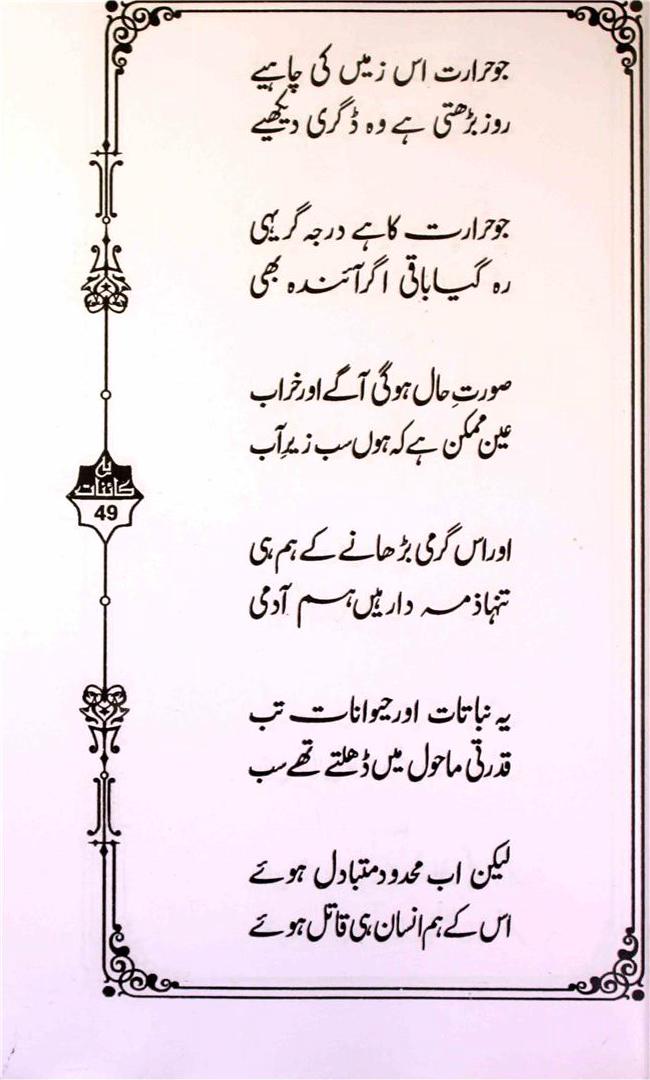 جو حرارت اس زمیں کی چاہیے
روز بڑھتی ہے وہ ڈگری دیکھیے
جو حرارت کا ہے درجہ گر یہی
رہ گیا باقی اگر آئندہ بھی
صورتِ حال ہوگی آگے اور خراب
عین ممکن ہے کہ ہوں سب زیرِ آب
یہ
کائنات
49
اور اس گرمی بڑھانے کے ہم ہی
تنہا ذمہ دار ہیں ہم آدمی
یہ نباتات اور حیوانات تب
قدرتی ماحول میں ڈھلتے تھے سب
لیکن اب محدود متبادل ہوئے
اس کے ہم انسان ہی قاتل ہوئے